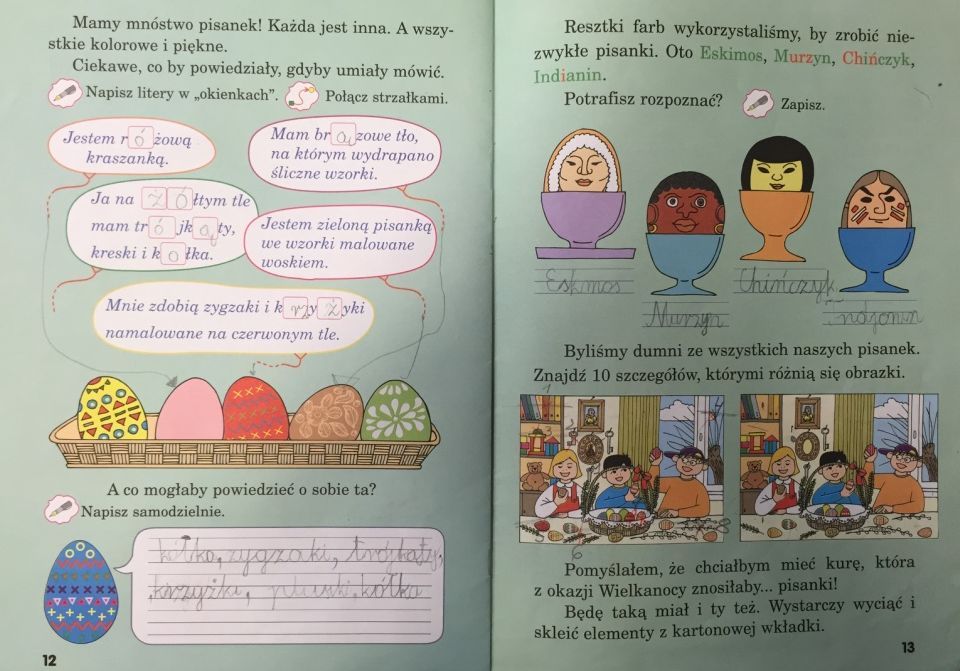 Mamy mnóstwo pisanek! Każda jest inna. A wszy-
stkie kolorowe i piękne.
Ciekawe, co by powiedziały, gdyby umiały mówić.
Napisz litery w „okienkach”. Połącz strzałkami.
Jestem różową
kraszanką.
Mam brązowe tło,
na którym wydrapano
śliczne wzorki.
Ja na żółtym tle
mam trójkąty,
kreski i kołka.
Jestem zieloną pisanką
we wzorki malowane
woskiem.
Mnie zdobią zygzaki i krzyżyki
namalowane na czerwonym tle.
A co mogłaby powiedzieć o sobie ta?
Napisz samodzielnie.
zygzaki, trójkąty,
krzyżyki, kółka
12
Resztki farb wykorzystaliśmy, by zrobić nie-
zwykłe pisanki. Oto Eskimos, Murzyn, Chińczyk,
Indianin.
Potrafisz rozpoznać? Zapisz.
Eskimos
Murzyn
Chińczyk
Byliśmy dumni ze wszystkich naszych pisanek.
Znajdź 10 szczegółów, którymi różnią się obrazki.
1
6
Pomyślałem, że chciałbym mieć kurę, która
z okazji Wielkanocy znosiłaby... pisanki!
Będę taką miał i ty też. Wystarczy wyciąć i
skleić elementy z kartonowej wkładki.
13